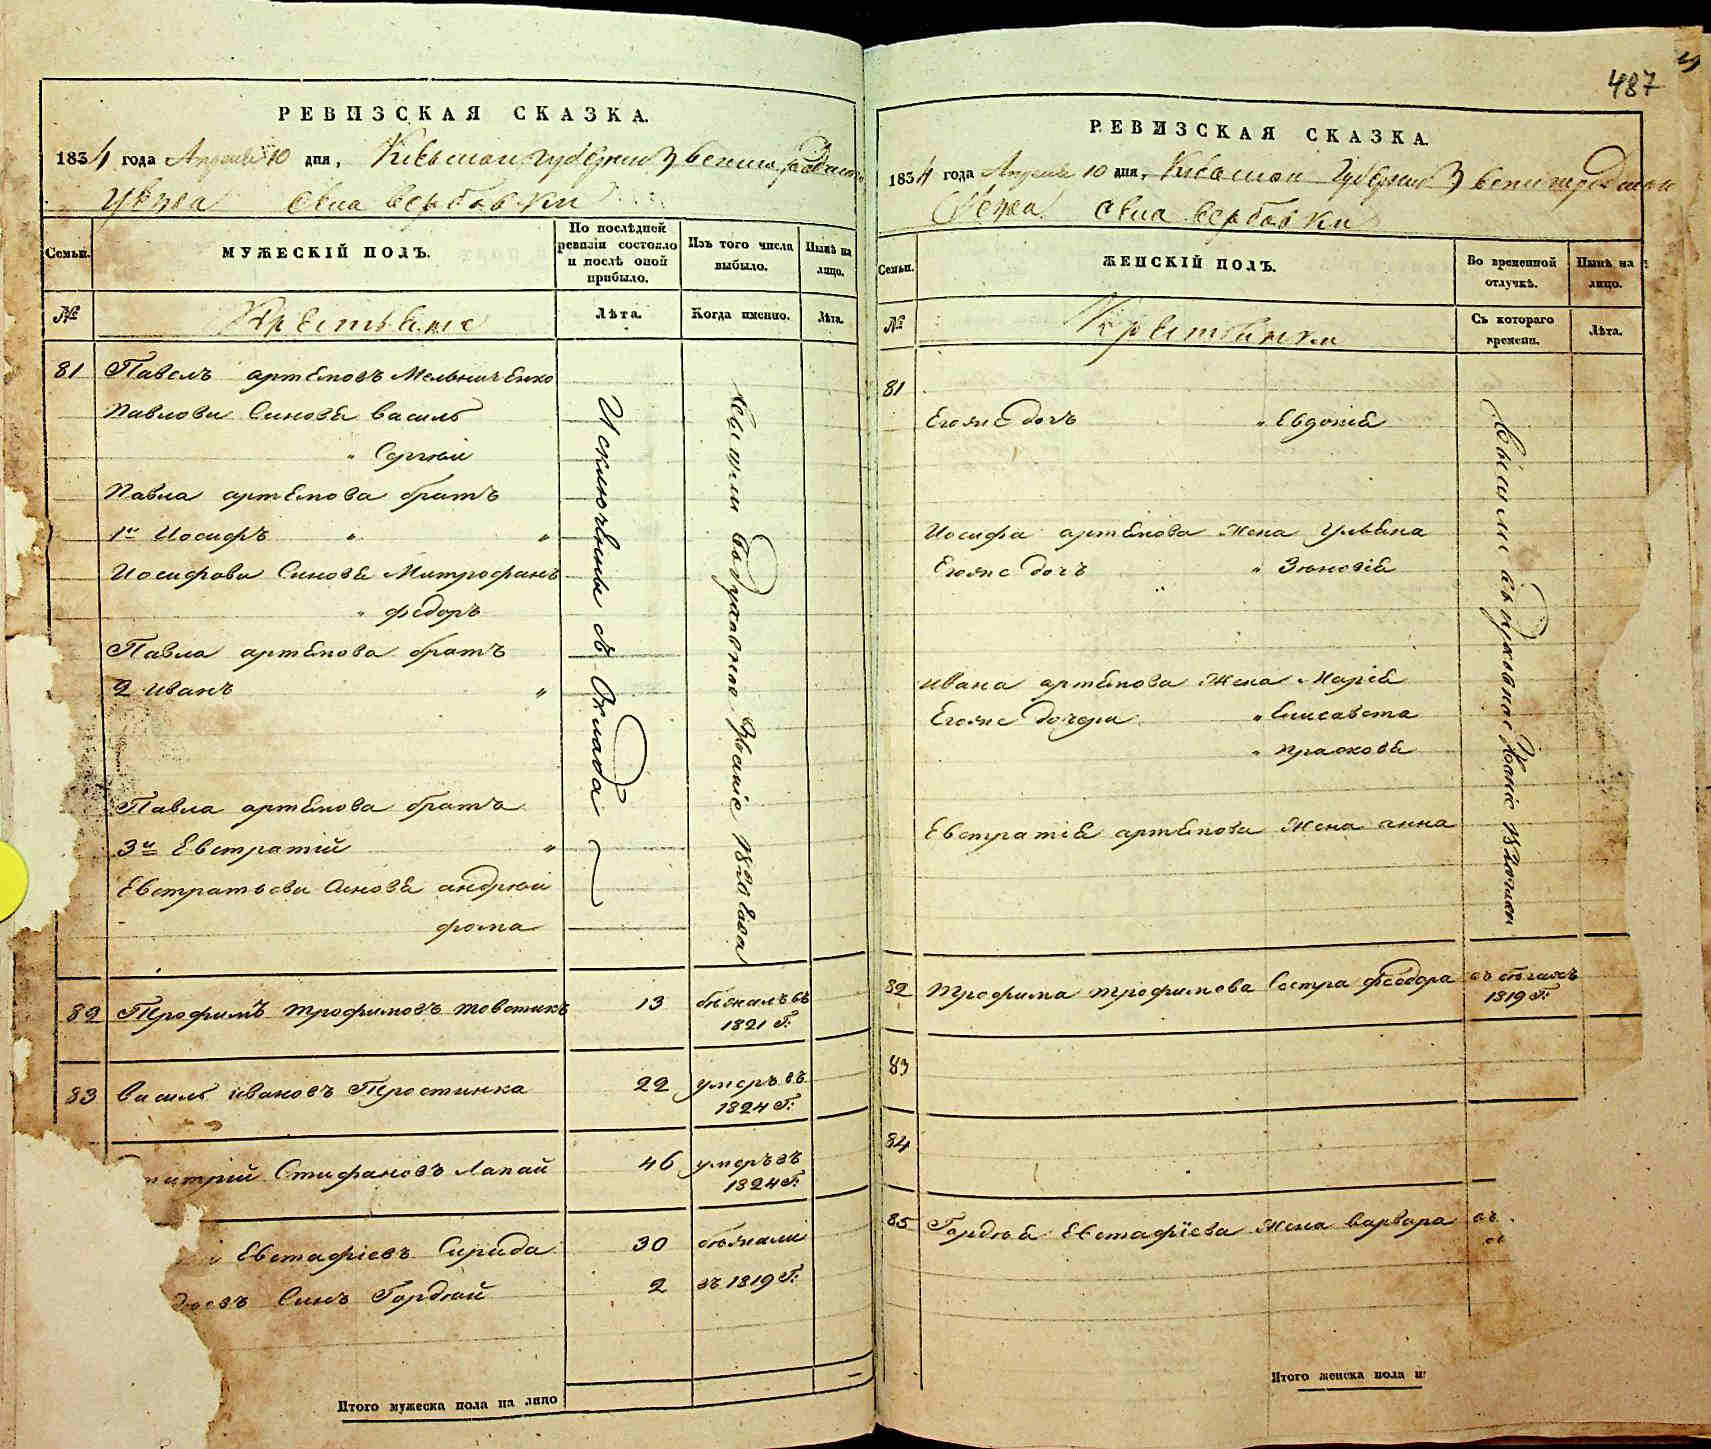 487
РЕВИЗСКАЯ СКАЗКА.
1834 года Апреля 10 дня, Киевской губернии Звенигородскаго
уезда села Вербовки
Семьи. МУЖЕСКІЙ ПОЛЪ. По послѣдней ревизіи состояло и послѣ оной прибыло. Изъ того числа выбыло. Нынѣ на лицо.
№ Крестьяне Лѣта. Когда именно. Лѣта.
81 Павелъ артемовъ Мельниченко
Павлови Синове Василь
" Сергий
Павла артемова братъ
1й Иосифъ " "
Иосифови Синове Митрофанъ
" федоръ
Павла артемова братъ
2 иванъ "
Павла артемова братъ
3й Евстратій "
Евстратьеви Синове андрій
фома
Исключени съ Оклада
духовное Званіе 1820 Года
82 Трофимъ трофимовъ товстикъ 13 бежалъ въ
1821 Г:
83 Василь ивановъ Тростинка 22 умеръ въ
1824 Г:
митрій Стифановъ Лапай 46 умеръ въ
1824 Г:
Евстафіевъ Сирида 30 бежали
Синъ Гордий 2 въ 1819 Г:
Итого мужеска пола на лицо —
РЕВИЗСКАЯ СКАЗКА.
1834 года Апреля 10 дня, Киевской Губернии Звенигородской
уезда села Вербовки
Семьи. ЖЕНСКІЙ ПОЛЪ. Во временной отлучкѣ. Нынѣ на лицо.
№ Крестьянки Съ котораго времени. Лѣта.
81
Егоже дочъ " Евдокіе
Иосифа артемова Жена Ульяна
Егоже дочъ " Зеновіе
ивана артемова Жена Маріе
Егоже дочери " Елисавета
" прасковіе
Евстратіе артемова Жена анна
82 трофима трофимова Сестра феодора въ бегахъ
1819 Г:
83
84
85 Гордіе Евстафіева жена Варвара въ
Итого женска пола